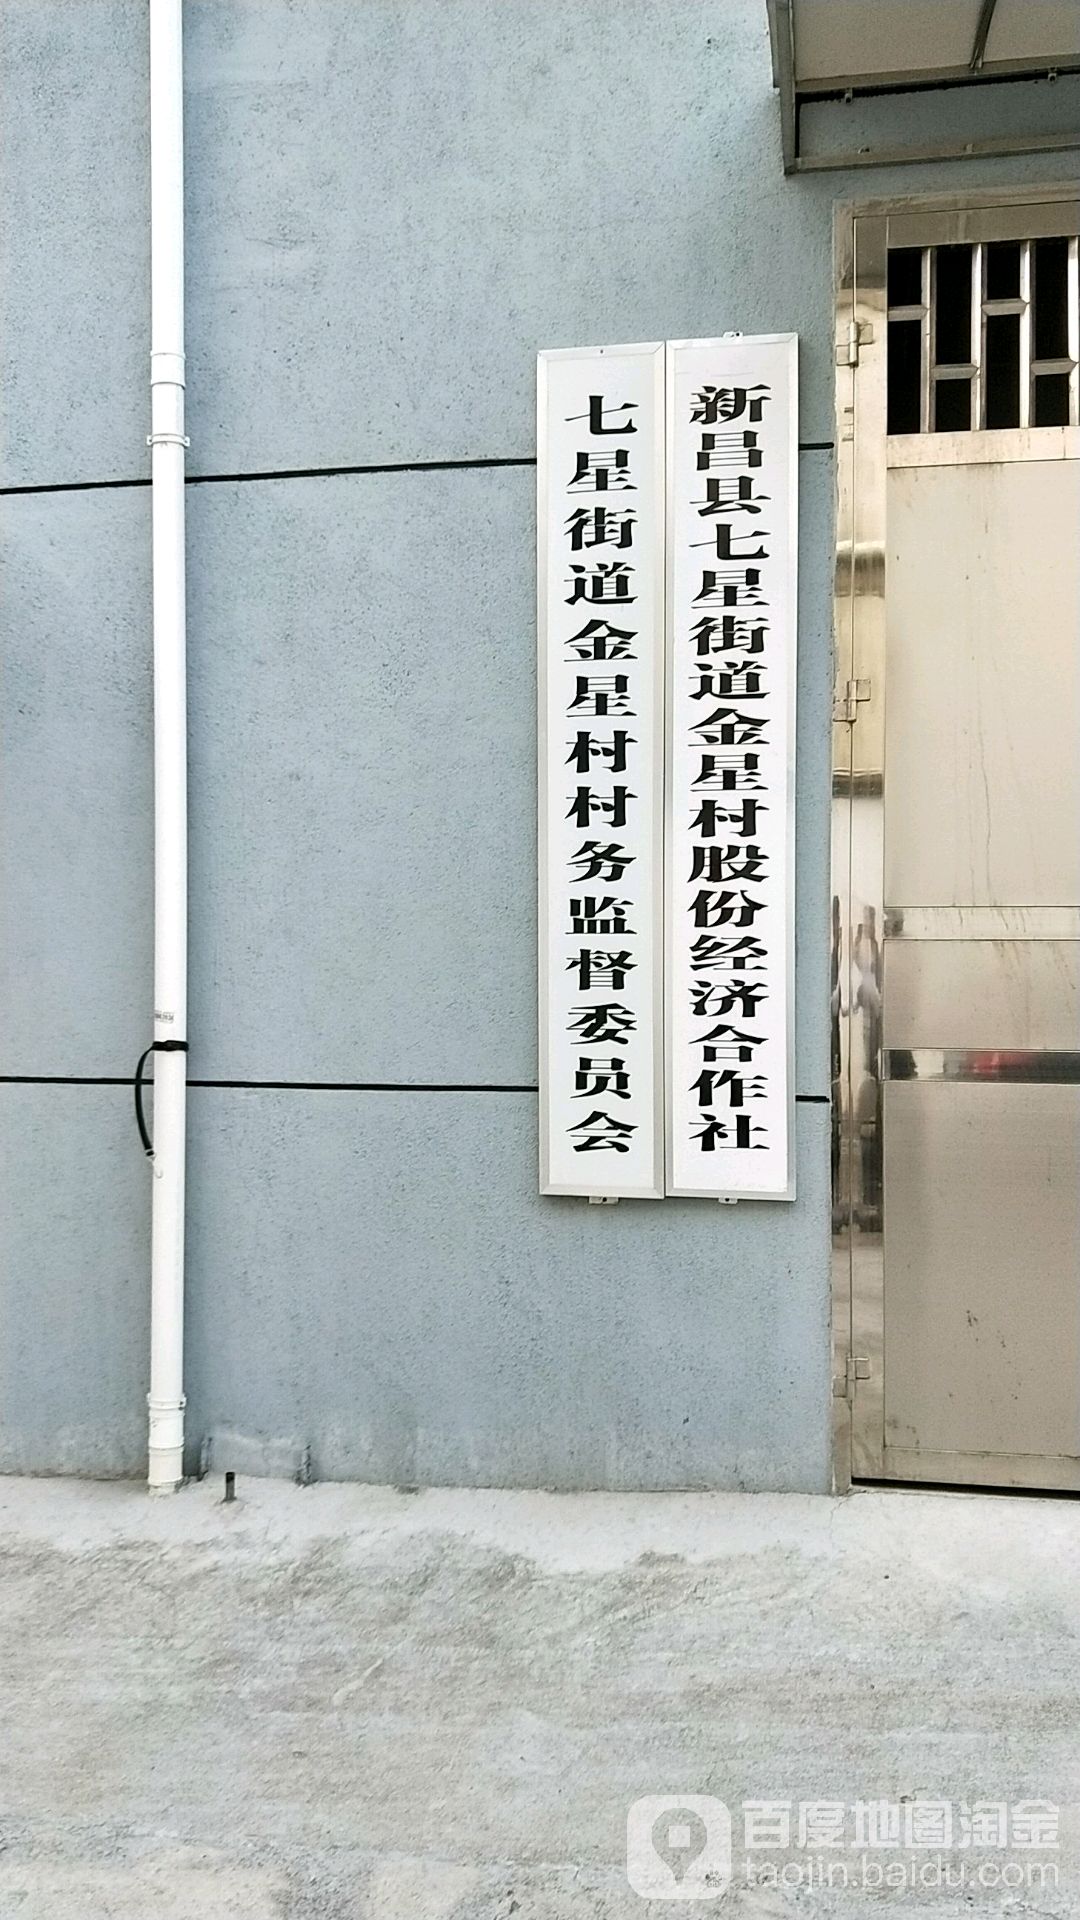 新昌县七星街道金星村股份经济合作社
七星街道金星村村务监督委员会
百度地图淘金
taojin.baidu.com